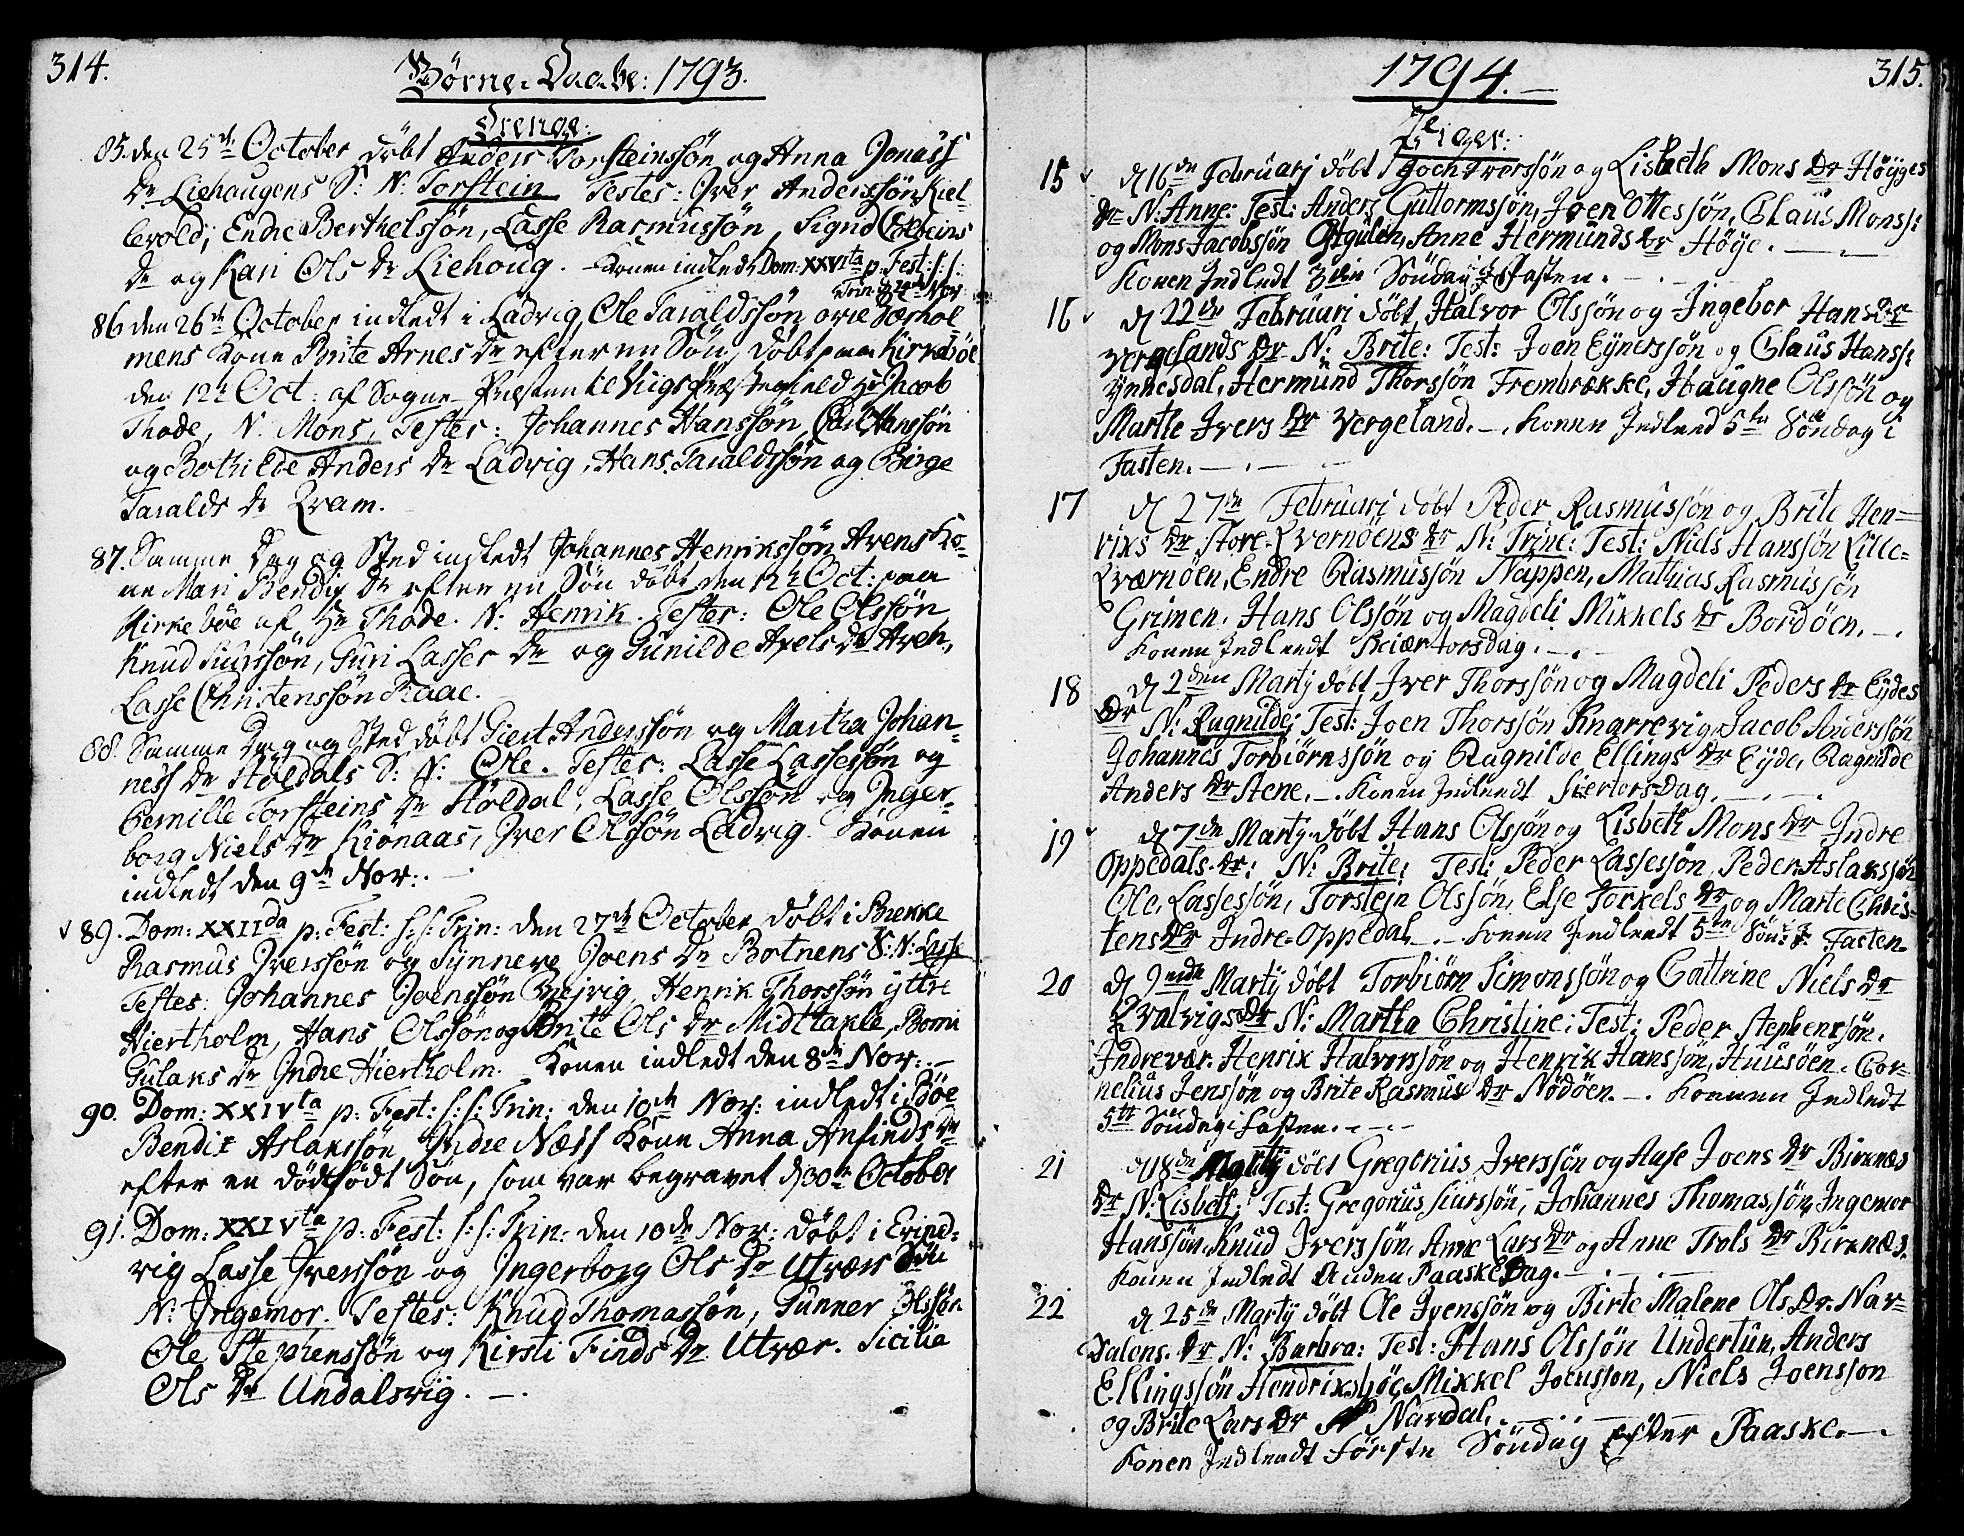 314.
Børne-Daabe: 1793.
Drenge:
85. den 25de October døbt Anders Torsteinssøn og Anna Jonass
Dr Liehougens S: N: Torstein Testes: Iver Anderssøn Kiel-
bevold, Endre Berthelssøn, Lasse Rasmussøn, Sigrid Colbeins
Dr og Kari Ols Dr Liehoug. Konen indledt Dom: XXVIta p. Fest: s: s:
Trin: d 24de Nov:
86 den 26de October indledt i Ladvig, Ole Taraldssøn
mens Kone Brite Arnes Dr efter en Søn, døbt paa Kirkebøe
den 12te Oct: af Sogne-Præsten til Præstegield Hr Jacob
Thode, N. Mons, Testes: Johannes Hanssøn, Hanssøn
og Bothilde Anders Dr Ladvig, Hans Taraldssøn og Birge
Taralds Dr Kram.
87. Samme Dag og Sted indledt Johannes Henrikssøn Avens Ko-
ne Mari Bendix Dr efter en Søn døbt den 12te Oct: paa
Kirkebøe af Hr Thode. N: Henrik. Testes: Ole Olssøn
Knud Siurssøn, Guri Lasses Dr og Gunilde Axels Dr Aven,
Lasse Christenssøn Raae.
88. Samme Dag og Sted døbt Giert Anderssøn og Martha Johan-
ness Dr Høldals S: N: Ole. Testes: Lasse Lassesøn og
Pernille Torsteins Dr Høldal, Lasse Olssøn og Inger-
borg Niels Dr Kionaas, Iver Olssøn Ladvig. Konen
indledt den 9de Nov:.
89. Dom: XXIIda p: Fest: s: s: Trin: den 27de October døbt i Brekke
Rasmus Iverssøn og Synneve Joens Dr Botnens S: N: Lasse
Testes: Johannes Joenssøn Henrik Thorssøn yttre
Hiertholm, Hans Olssøn og Brite Ols Dr Midttakle, Bomi
Gulaks Dr Indre Hiertholm. Konen indledt den 8de Nov:.
90. Dom: XXIVta p: Fest: s: s: Trin: den 10de Nov: indledt i Bøe
Bendix Aslakssøn Indre Næss Kone Anna Anfinds Dr
efter en dødfødt Søn, som var begravet d 30te October
91. Dom: XXIVta p: Fest: s: s: Trin: den 10de Nov: døbt i Evind-
vig Lasse Iverssøn og Ingerborg Ols Dr Utvær Søn
N: Ingemor. Testes: Knud Thomassøn, Gunner Olssøn
Ole Stephenssøn og Kirsti Finds Dr Utvær. Sicilia
Ols Dr Undalsvig.
1794.
315.
Piger:
15 d 16de Februarj døbt Iverssøn og Lisbeth Mons Dr Høyges
Dr N: Anne: Test: Anders Guttormssøn, Joen Ottessøn, Claus Monss:
og Mons Jacobssøn Anne Hermunds Dr Høye.
Konen Indledt 3die Søndag i Fasten.
16 d 22de Februari døbt Halvor Olssøn og Ingebor Hans Dr
Vergelands Dr N. Brite: Test: Joen Eynerssøn og Claus Hanss:
Ynnesdal, Hermund Thorssøn Frembrække, Haugne Olssøn og
Marthe Ivers Dr Vergeland. Konen Indleed 5te Søndag i
Fasten.
17 d 27de Februari døbt Peder Rasmussøn og Brite Hen-
rixs Dr Store-Kvernøens Dr N: Trine: Test: Niels Hanssøn Lille-
Kværnøen, Endre Rasmussøn Nappen, Mathias Rasmussøn
Grimen, Hans Olssøn og Magdeli Mikkels Dr Bordøen.
Konen Indleedt Skiærtorsdag.
18 d 2den Martij døbt Iver Thorssøn og Magdeli Peders Dr Eydes
Dr N: Ragnilde: Test: Joen Thorssøn Knarrevig, Jacob Anderssøn
Johannes Torbiørnssøn og Ragnilde Ellings Dr Eyde, Ragnilde
Anders Dr Stene. Konen Indleedt Skiertorsdag.
19 d 7de Martij døbt Hans Olssøn og Lisbeth Mons Dr Indre
Oppedals Dr: N: Brite: Test: Peder Lassessøn, Peder Aslakssøn
Ole Lassessøn, Torstein Olssøn, Else Torkels Dr og Marte Chris-
tens Dr Indre-Oppedal. Konen Indleedt 5te Sønd: i Fasten.
20 d 9nde Martij døbt Torbiørn Simonssøn og Cattrine Niels Dr
Kvalvigs Dr N: Martha Christine: Test: Peder Stephenssøn
Indrevær. Henrix Halvorssøn og Henrik Hanssøn, Huusøen. Cor-
nelius Jenssøn og Brite Rasmus Dr Nødøen. Konnen Indledt
5te Søndag i Fasten.
21 d 18de Martij døbt Gregorius Iverssøn og Aase Joens Dr Birknæs
Dr N: Lisbeth: Test: Gregorius Siurssøn, Johannes Thomassøn, Ingemor
Hanssøn, Knud Iverssøn, Anne Lars Dr og Anne Trols Dr Birknæs.
Konen Indledt Anden Paaske Dag.
22 d 25de Martij døbt Ole Ivenssøn og Birte Malene Ols Dr Nav-
Dalens Dr N: Barbra: Test: Hans Olssøn Undertun, Anders
Ellingssøn Hendriksbøe, Mikkel Joenssøn, Niels Joenssøn
og Brite Lars Dr Navdal.
Konen Indleedt første Søndag Efter Paaske.